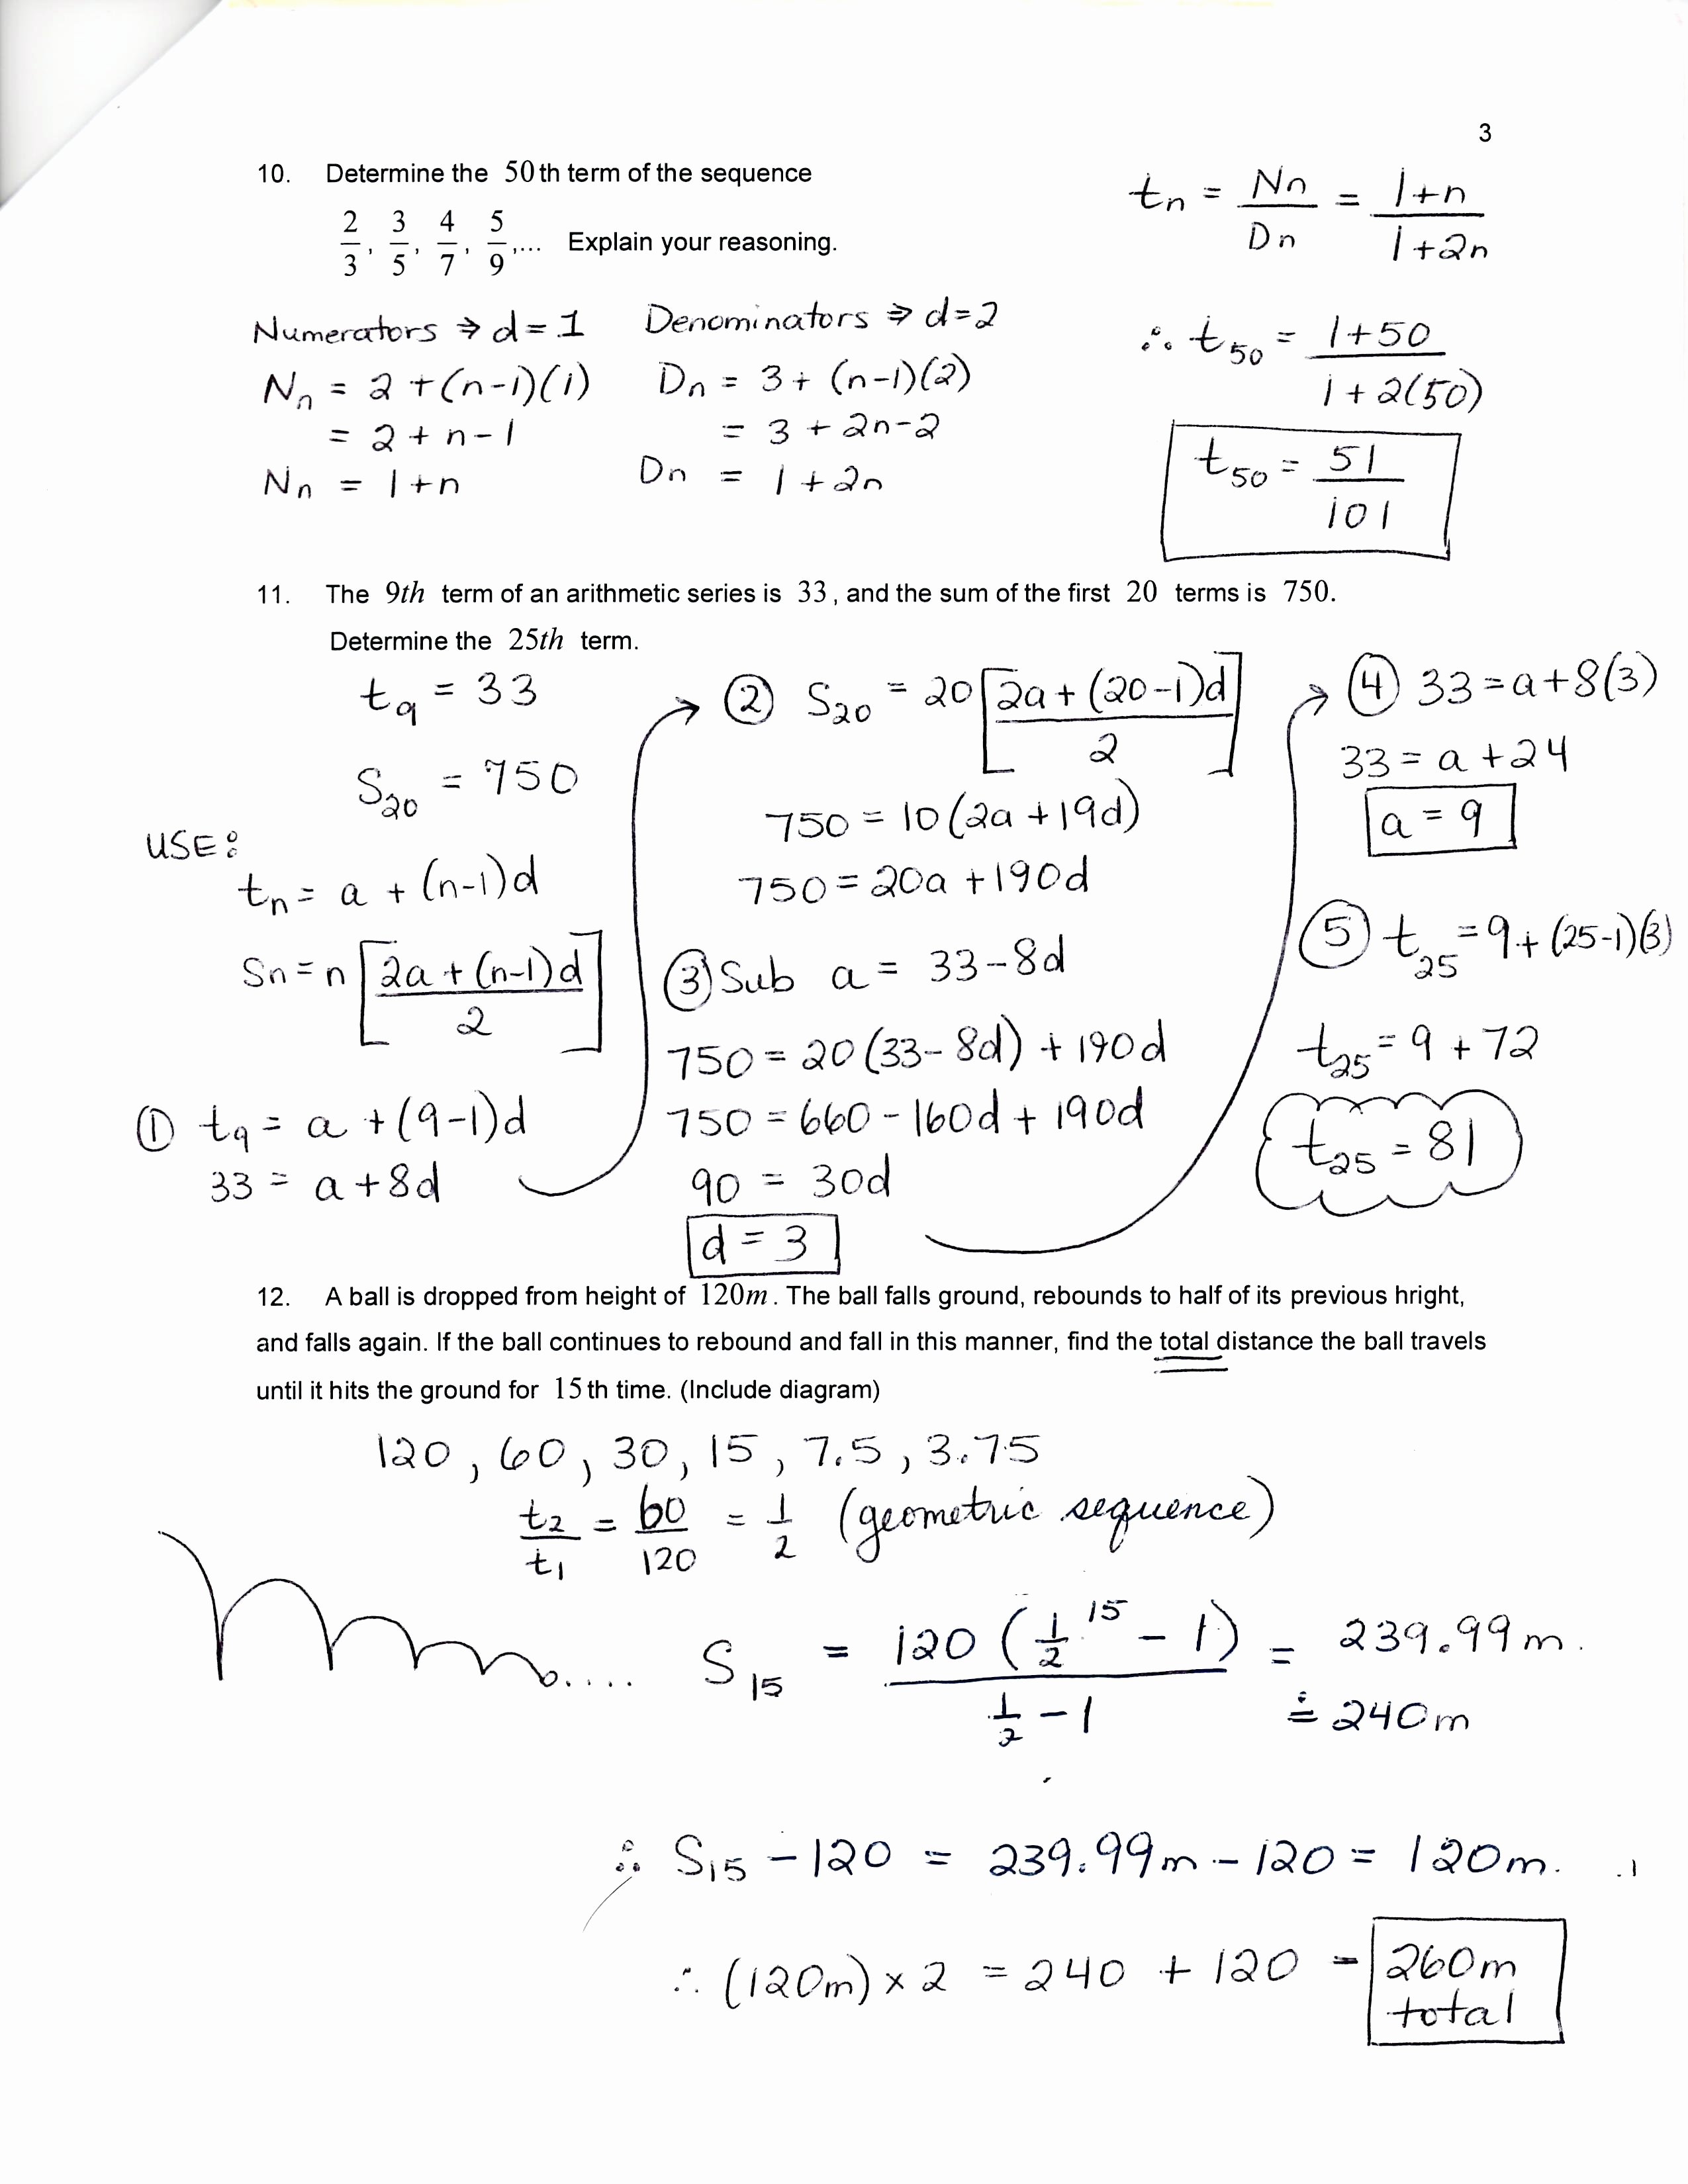 3
10. Determine the 50th term of the sequence
2/3, 3/5, 4/7, 5/9,... Explain your reasoning.
tn = Nn/Dn = 1+n/1+2n
Numerators ⇒ d = 1
Nn = 2 + (n-1)(1)
= 2 + n - 1
Nn = 1+n
Denominators ⇒ d=2
Dn = 3 + (n-1)(2)
= 3 + 2n-2
Dn = 1 + 2n
∴ t50 = 1+50/1+2(50)
t50 = 51/101
11. The 9th term of an arithmetic series is 33, and the sum of the first 20 terms is 750.
Determine the 25th term.
t9 = 33
S20 = 750
USE:
tn = a + (n-1)d
Sn = n[2a + (n-1)d/2]
① t9 = a + (9-1)d
33 = a + 8d
② S20 = 20[2a + (20-1)d/2]
750 = 10(2a + 19d)
750 = 20a + 190d
③ Sub a = 33-8d
750 = 20(33-8d) + 190d
750 = 660 - 160d + 190d
90 = 30d
d = 3
④ 33 = a + 8(3)
33 = a + 24
a = 9
⑤ t25 = 9 + (25-1)(3)
t25 = 9 + 72
t25 = 81
12. A ball is dropped from height of 120m. The ball falls ground, rebounds to half of its previous hright,
and falls again. If the ball continues to rebound and fall in this manner, find the total distance the ball travels
until it hits the ground for 15th time. (Include diagram)
120, 60, 30, 15, 7.5, 3.75
t2/t1 = 60/120 = 1/2 (geometric sequence)
S15 = 120(1/2^15 - 1)/1/2 - 1 = 239.99m.
≐ 240m
∴ S15 - 120 = 239.99m - 120 = 120m.
∴ (120m) x 2 = 240 + 120 = 260m
total